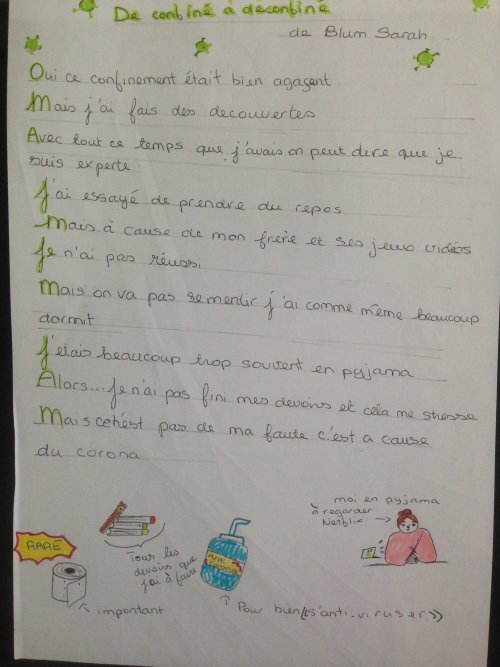 De confiné à deconfiné
de Blum Sarah
Oui ce confinement était bien agaçant
Mais j'ai fais des decouvertes
Avec tout ce temps que j'avais on peut dire que je
suis experte
J'ai essayé de prendre du repos
Mais à cause de mon frère et ses jeux vidéos
Je n'ai pas réussi
Mais on va pas se mentir j'ai comme même beaucoup
dormit
J'étais beaucoup trop souvent en pyjama
Alors... Je n'ai pas fini mes devoirs et cela me stresse
Mais cen'est pas de ma faute c'est a cause
du corona
RARE
important
Tous les
devoirs que
j'ai à faire
Anti
Corona
Pour bien "s'anti-viruser"
moi en pyjama
à regarder
Netflix